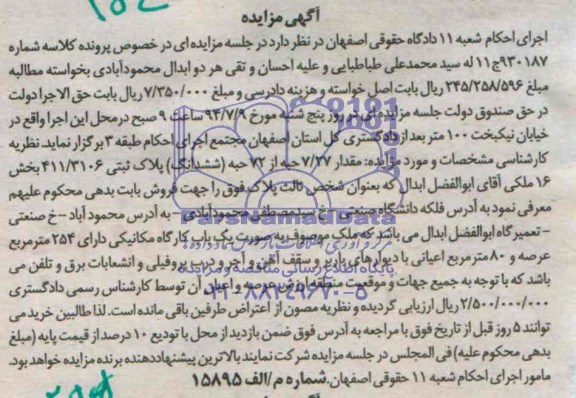 آگهی مزایده
اجرای احکام شعبه ۱۱ دادگاه حقوقی اصفهان در نظر دارد در جلسه مزایده ای در خصوص پرونده کلاسه شماره
۹۳۰۱۸۷ج۱۱ له سید محمدعلی طباطبایی و علیه احسان و تقی هر دو ابدال محمودآبادی بخواسته مطالبه
مبلغ ۲۴۵/۲۵۸/۵۹۶ ریال بابت اصل خواسته و هزینه دادرسی و مبلغ ۷/۳۵۰/۰۰۰ ریال بابت حق الاجرا دولت
در حق صندوق دولت جلسه مزایده ای در روز پنج شنبه مورخ ۹۴/۷/۹ ساعت ۹ صبح در محل این اجرا واقع در
خیابان نیکبخت ۱۰۰ متر بعد از دادگستری کل استان اصفهان مجتمع اجرای احکام طبقه ۳ برگزار نماید. نظریه
کارشناسی مشخصات و مورد مزایده: مقدار ۷/۲۷ حبه از ۷۲ حبه (ششدانگ) پلاک ثبتی ۴۱۱/۳۱۰۶ بخش
۱۶ ملکی آقای ابوالفضل ابدال که بعنوان شخص ثالث پلاک فوق را جهت فروش بابت بدهی محکوم علیهم
معرفی نمود به آدرس فلکه دانشگاه صنعتی - خ سید مصطفی محمودآبادی - به آدرس محمود آباد - خ صنعتی
- تعمیرگاه ابوالفضل ابدال می باشد که ملک موصوف به صورت یک باب کارگاه مکانیکی دارای ۲۵۴ مترمربع
عرصه و ۸۰ مترمربع اعیانی با دیوارهای باربر و سقف آهن و آجر و درب پروفیلی و انشعابات برق و تلفن می
باشد که با توجه به جمیع جهات و موقعیت منطقه ارزش عرصه و اعیان آن توسط کارشناس رسمی دادگستری
۲/۵۰۰/۰۰۰/۰۰۰ ریال ارزیابی گردیده و نظریه مصون از اعتراض طرفین باقی مانده است. لذا طالبین خرید می
توانند ۵ روز قبل از تاریخ فوق با مراجعه به آدرس فوق ضمن بازدید از محل با تودیع ۱۰ درصد از قیمت پایه (مبلغ
بدهی محکوم علیه) فی المجلس در جلسه مزایده شرکت نمایند بالاترین پیشنهاددهنده برنده مزایده خواهد بود.
مامور اجرای احکام شعبه ۱۱ حقوقی اصفهان. شماره م/الف ۱۵۸۹۵
ParsNamadData
پایگاه اطلاع رسانی مناقصه و مزایده
۰۲۱-۸۸۳۴۹۶۷۰-۵